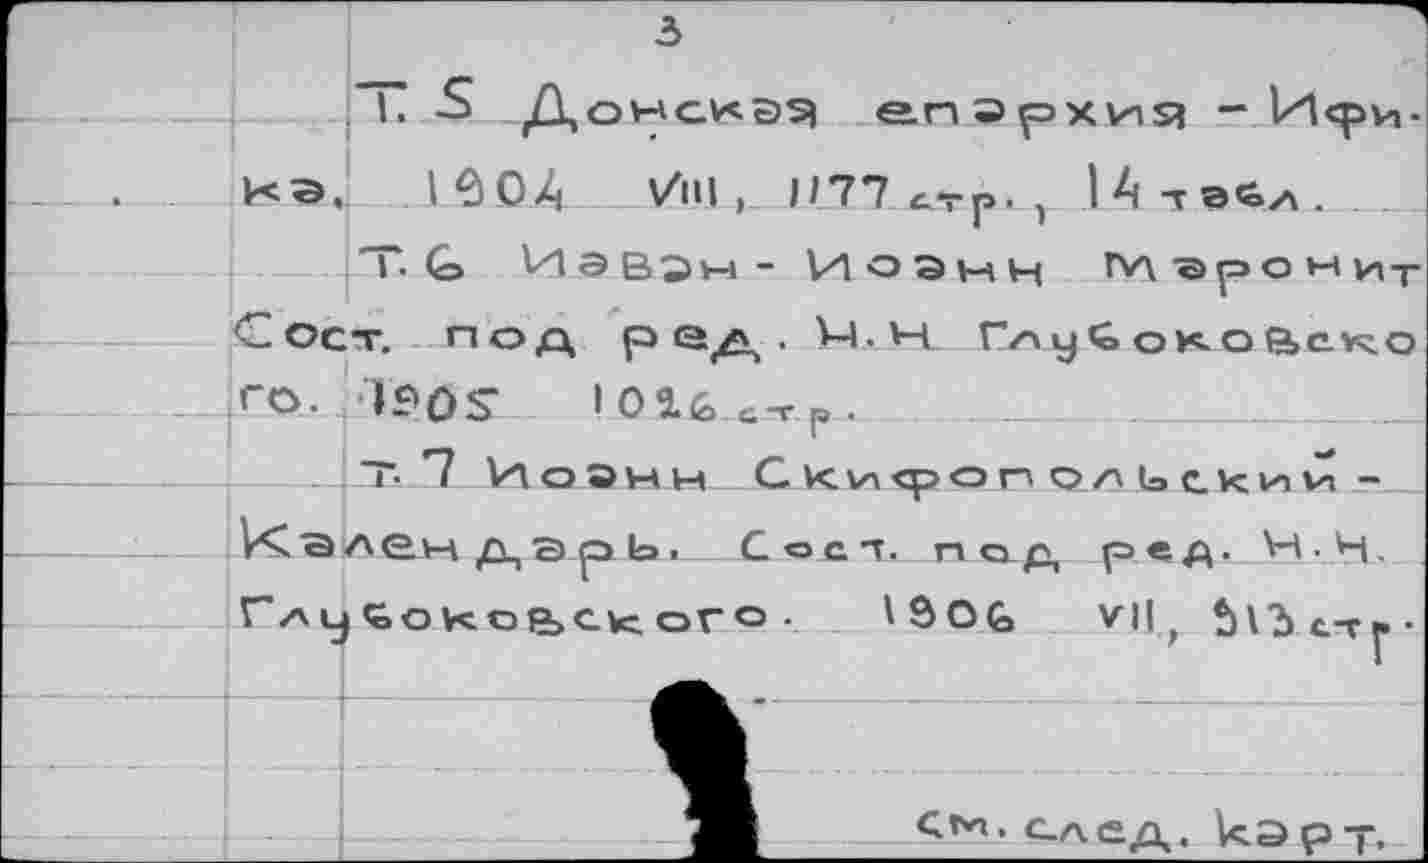 3
Т. 5 Донская епархия - Ифи-
ка. 1904 VIII, 1177 стр., 14 табл.
Т. 6 Иаван - Иоанн Маронит
Сост. под ред. Н.Н Глубоковско
го. 1905 1026 стр.
Т. 7 Иоанн Скифопольский -
Календарь. Сост. под ред. Н.Н.
Глубоковского. 1906 VII, 913 стр.
См. след. карт.